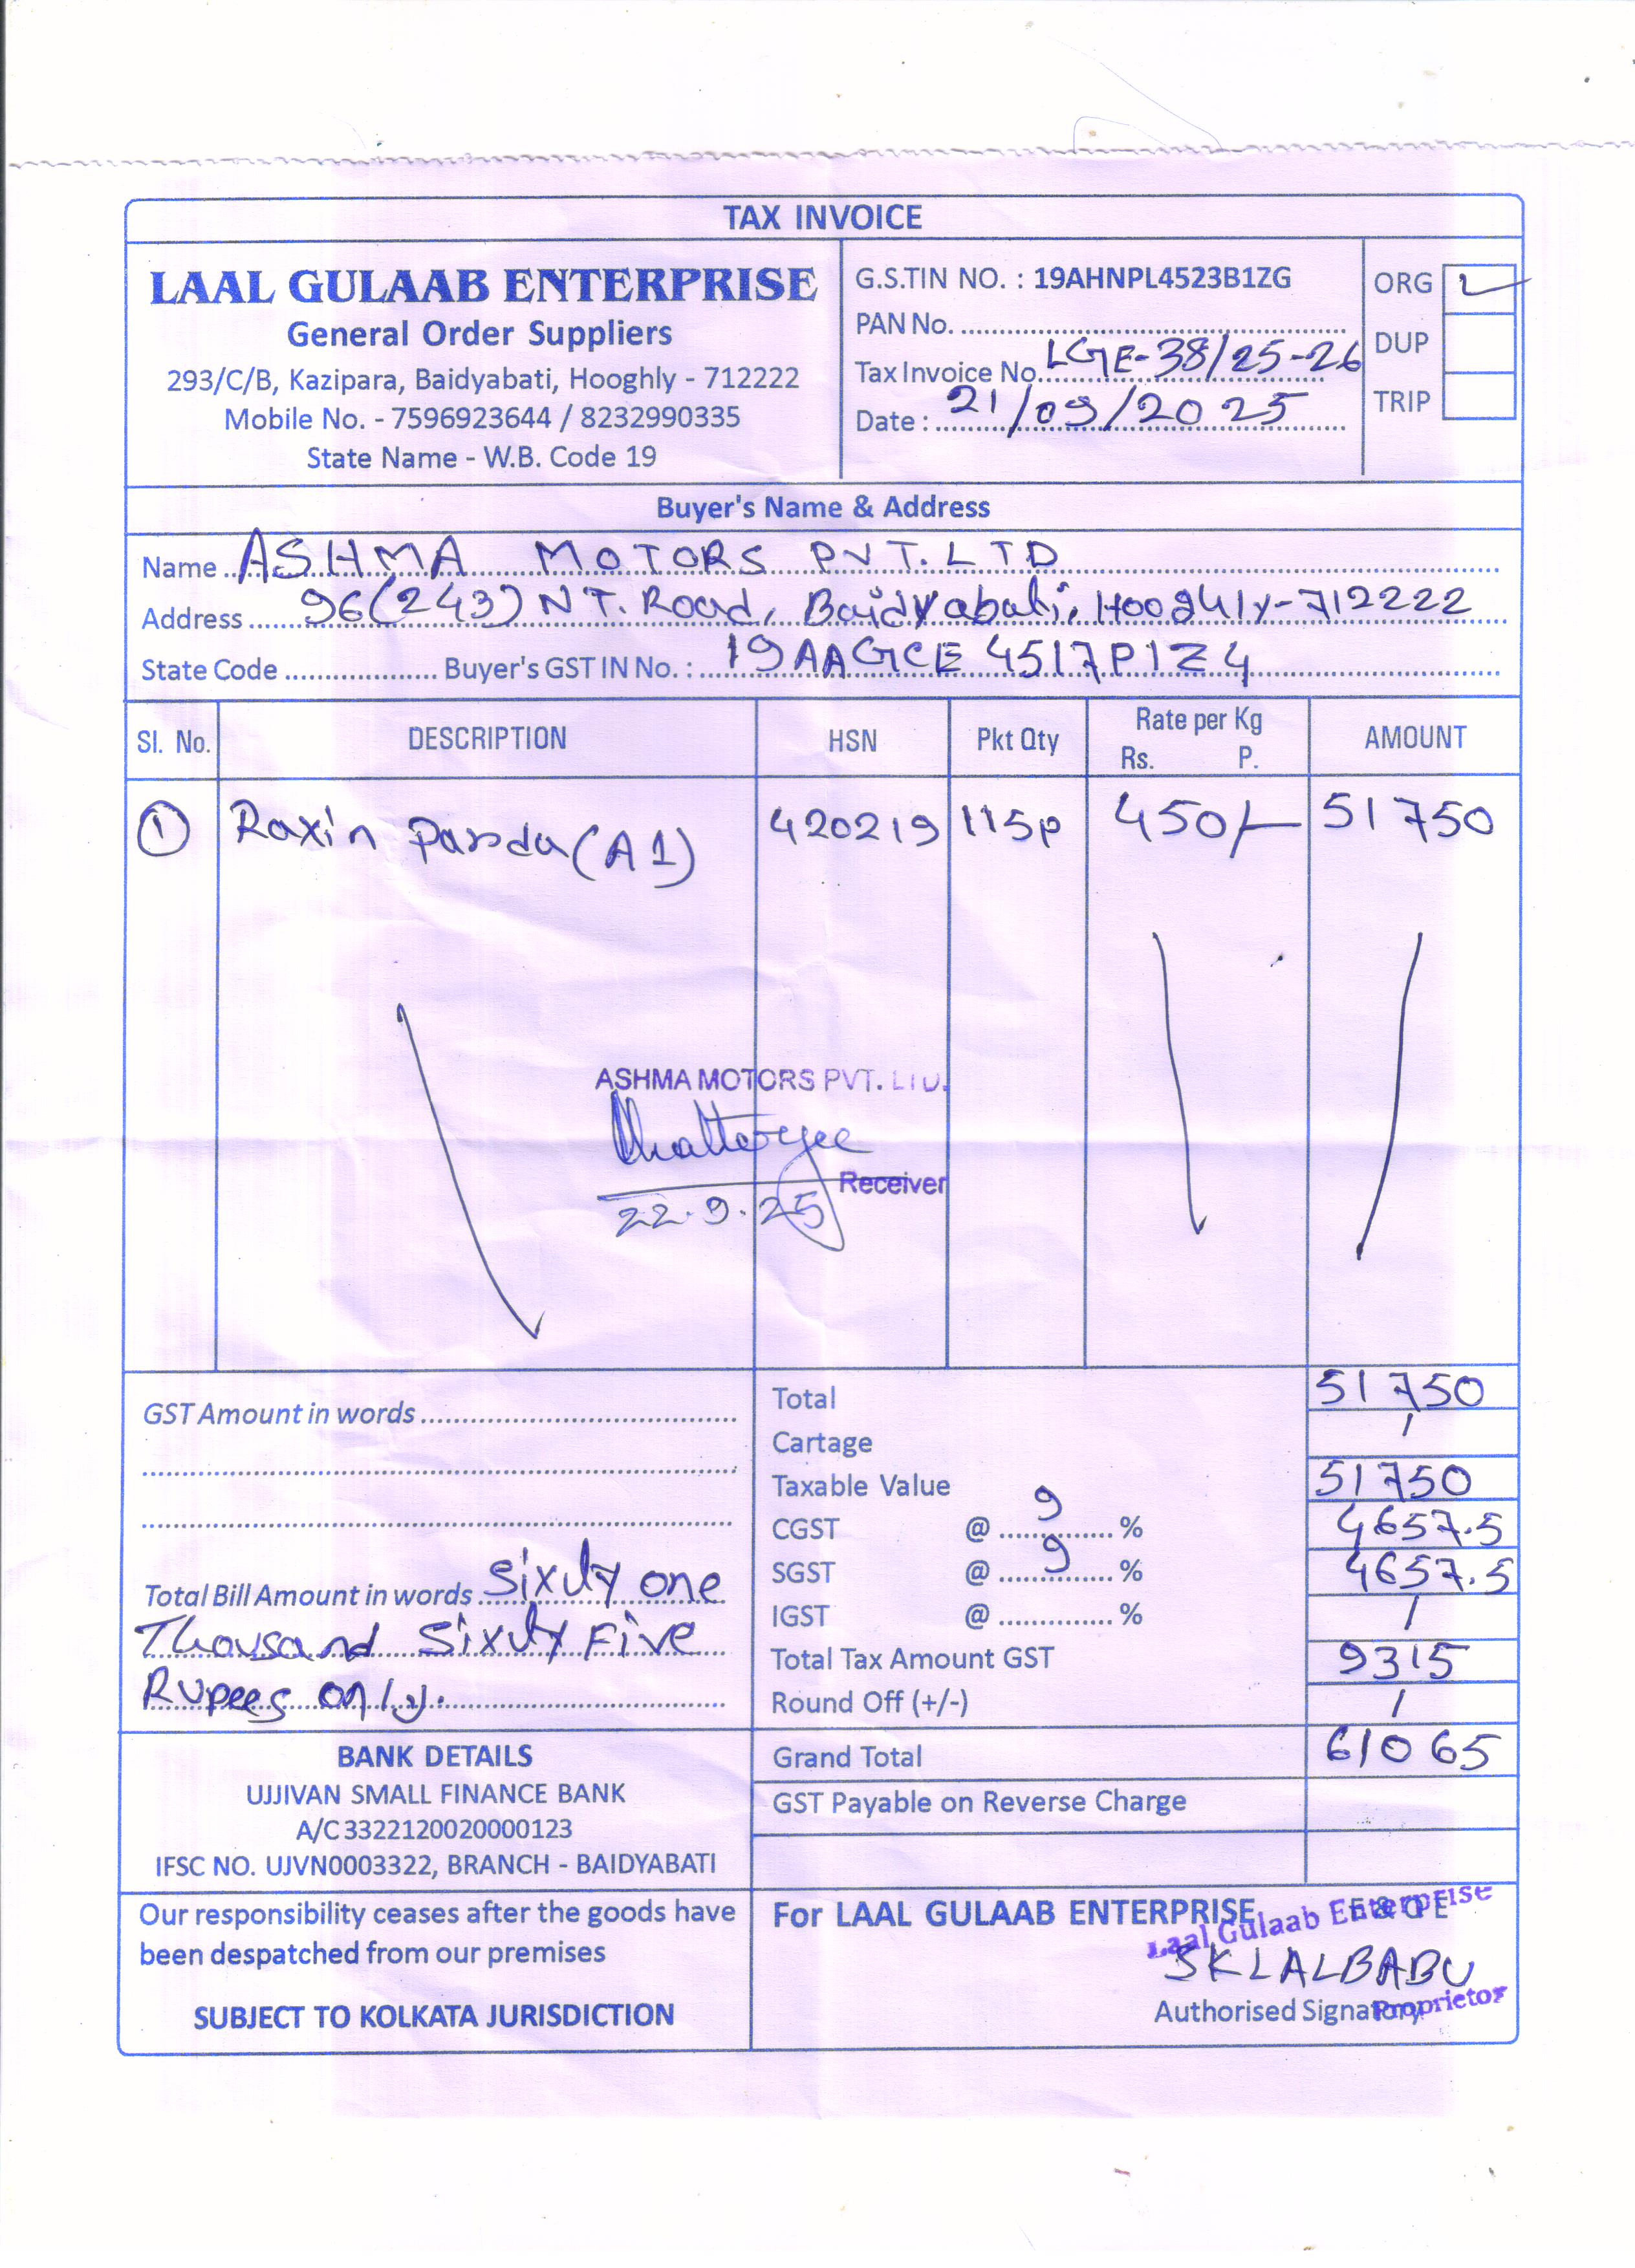 TAX INVOICE
LAAL GULAAB ENTERPRISE
General Order Suppliers
293/C/B, Kazipara, Baidyabati, Hooghly - 712222
Mobile No. - 7596923644 / 8232990335
State Name - W.B. Code 19
G.S.TIN NO. : 19AHNPL4523B1ZG
PAN No.
Tax Invoice No. LGE-38/25-26
Date : 21/09/2025
ORG
DUP
TRIP
Buyer's Name & Address
Name ASHMA MOTORS PVT. LTD
Address 96(243) N T. Road, Baidyabati, Hooghly-712222
State Code Buyer's GST IN No. : 19AAGCE4517P1Z4
Sl. No. DESCRIPTION HSN Pkt Qty Rate per Kg Rs. P. AMOUNT
1 Raxin (A1) 420219 115p 450/- 51750
ASHMA MOTORS PVT. LTD.
Chatterjee
Receiver
22.9.25
GST Amount in words
Total Bill Amount in words Sixuty one
Thousand Sixuty Five
Rupees only.
Total 51750
Cartage /
Taxable Value 51750
CGST @ 9 % 4657.5
SGST @ 9 % 4657.5
IGST @ % /
Total Tax Amount GST 9315
Round Off (+/-) /
Grand Total 61065
GST Payable on Reverse Charge
BANK DETAILS
UJJIVAN SMALL FINANCE BANK
A/C 3322120020000123
IFSC NO. UJVN0003322, BRANCH - BAIDYABATI
Our responsibility ceases after the goods have
been despatched from our premises
SUBJECT TO KOLKATA JURISDICTION
For LAAL GULAAB ENTERPRISE E & O E
Laal Gulaab Enterprise
SK LALBABU
Authorised Signatory
Proprietor